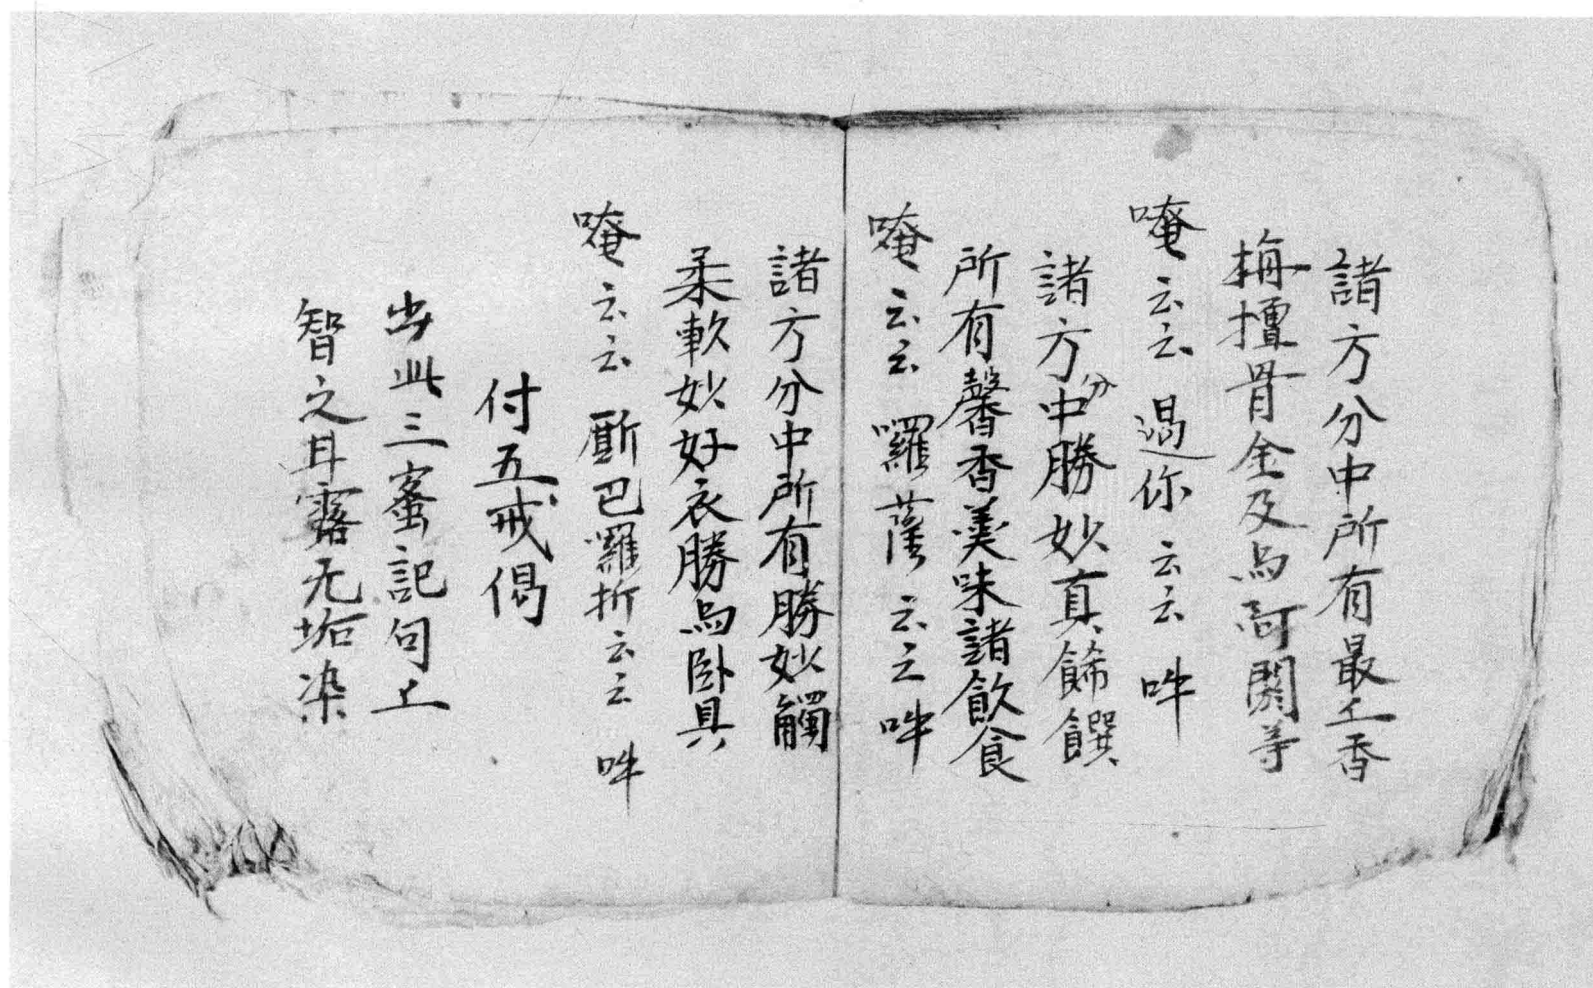 諸方分中所有最上香
栴檀骨金及烏訶閼等
唵云云 遏你 云云 吽
諸方分中勝妙真餙饌
所有馨香美味諸飲食
唵云云 囉薩 云云 吽
諸方分中所有勝妙觸
柔軟妙好衣勝烏卧具
唵云云 厮巴囉折云云 吽
付五戒偈
出此三蜜記句上
智之耳露无垢染